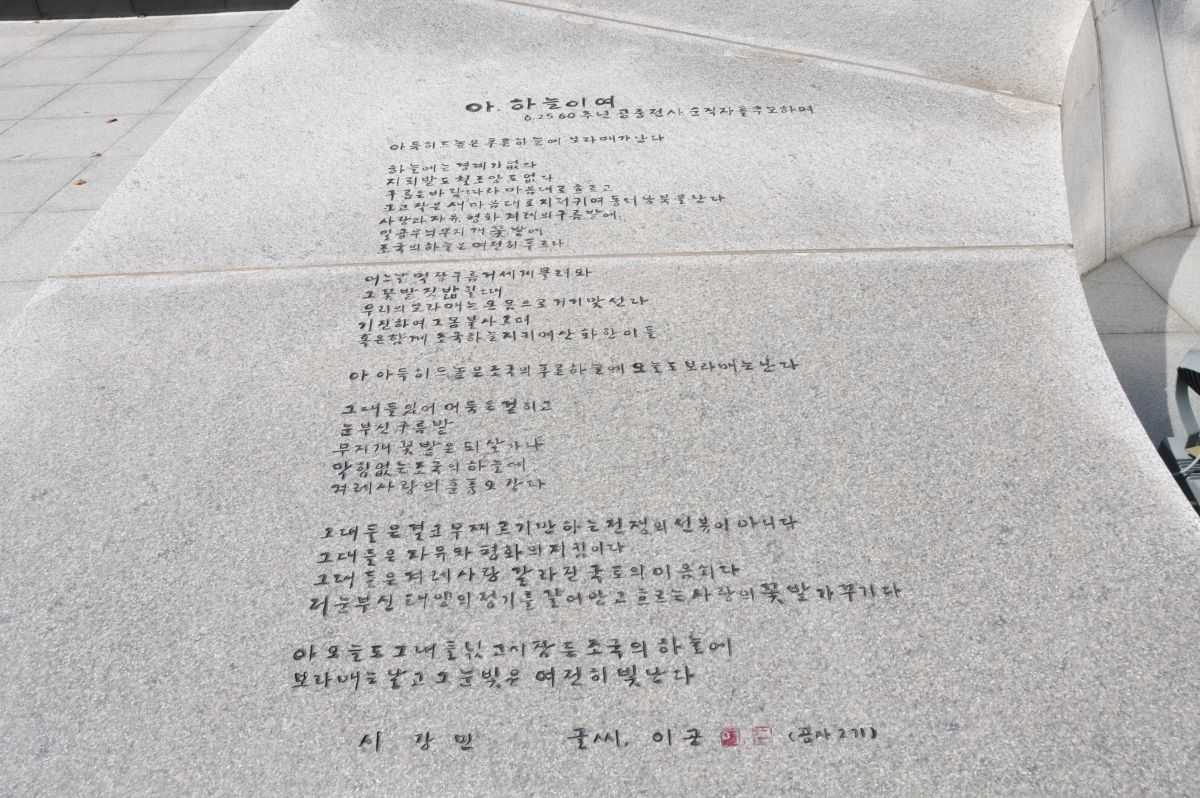 아. 하늘이여
6.25 60주년 공중전사.순직자를 추모하며
아득히 드높은 푸른 하늘에 보라매가 난다
하늘에는 경계가 없다
지뢰밭도 철조망도 없다
구름은 바람따라 마음대로 흐르고
그 고 작은 새 마음대로 지저귀며 동서남북을 난다
사랑과 자유. 평화 겨레의 구름밭에
일곱무늬 무지개 꽃밭에
조국의 하늘은 여전히 푸르다
어느날 먹장구름 거세게 몰려와
그 꽃밭 짓밟을 때
우리의 보라매는 온몸으로 거기 맞선다
기진하여 그 몸 불사르며
혹은 함께 조국하늘 지키며 산화한 이들
아 아득히 드높은 조국의 푸른 하늘에 오늘도 보라매는 난다
그대들 있어 어둠도 걷히고
눈부신 구름밭
무지개 꽃밭은 되살아나
막힘없는 조국의 하늘에
겨레사랑의 훈풍 오간다
그대들은 결코 무찌르기만 하는 전쟁의 선봉이 아니다
그대들은 자유와 평화의 지킴이다
그대들은 겨레사랑 갈라진 국토의 이음쇠다
저 눈부신 태양의 정기를 끌어안고 흐르는 사랑의 꽃밭 가꾸기다
아 오늘도 그대들 넋 고이 잠든 조국의 하늘에
보라매는 날고 그 눈빛은 여전히 빛난다
시 강민 글씨. 이근 (공사2기)